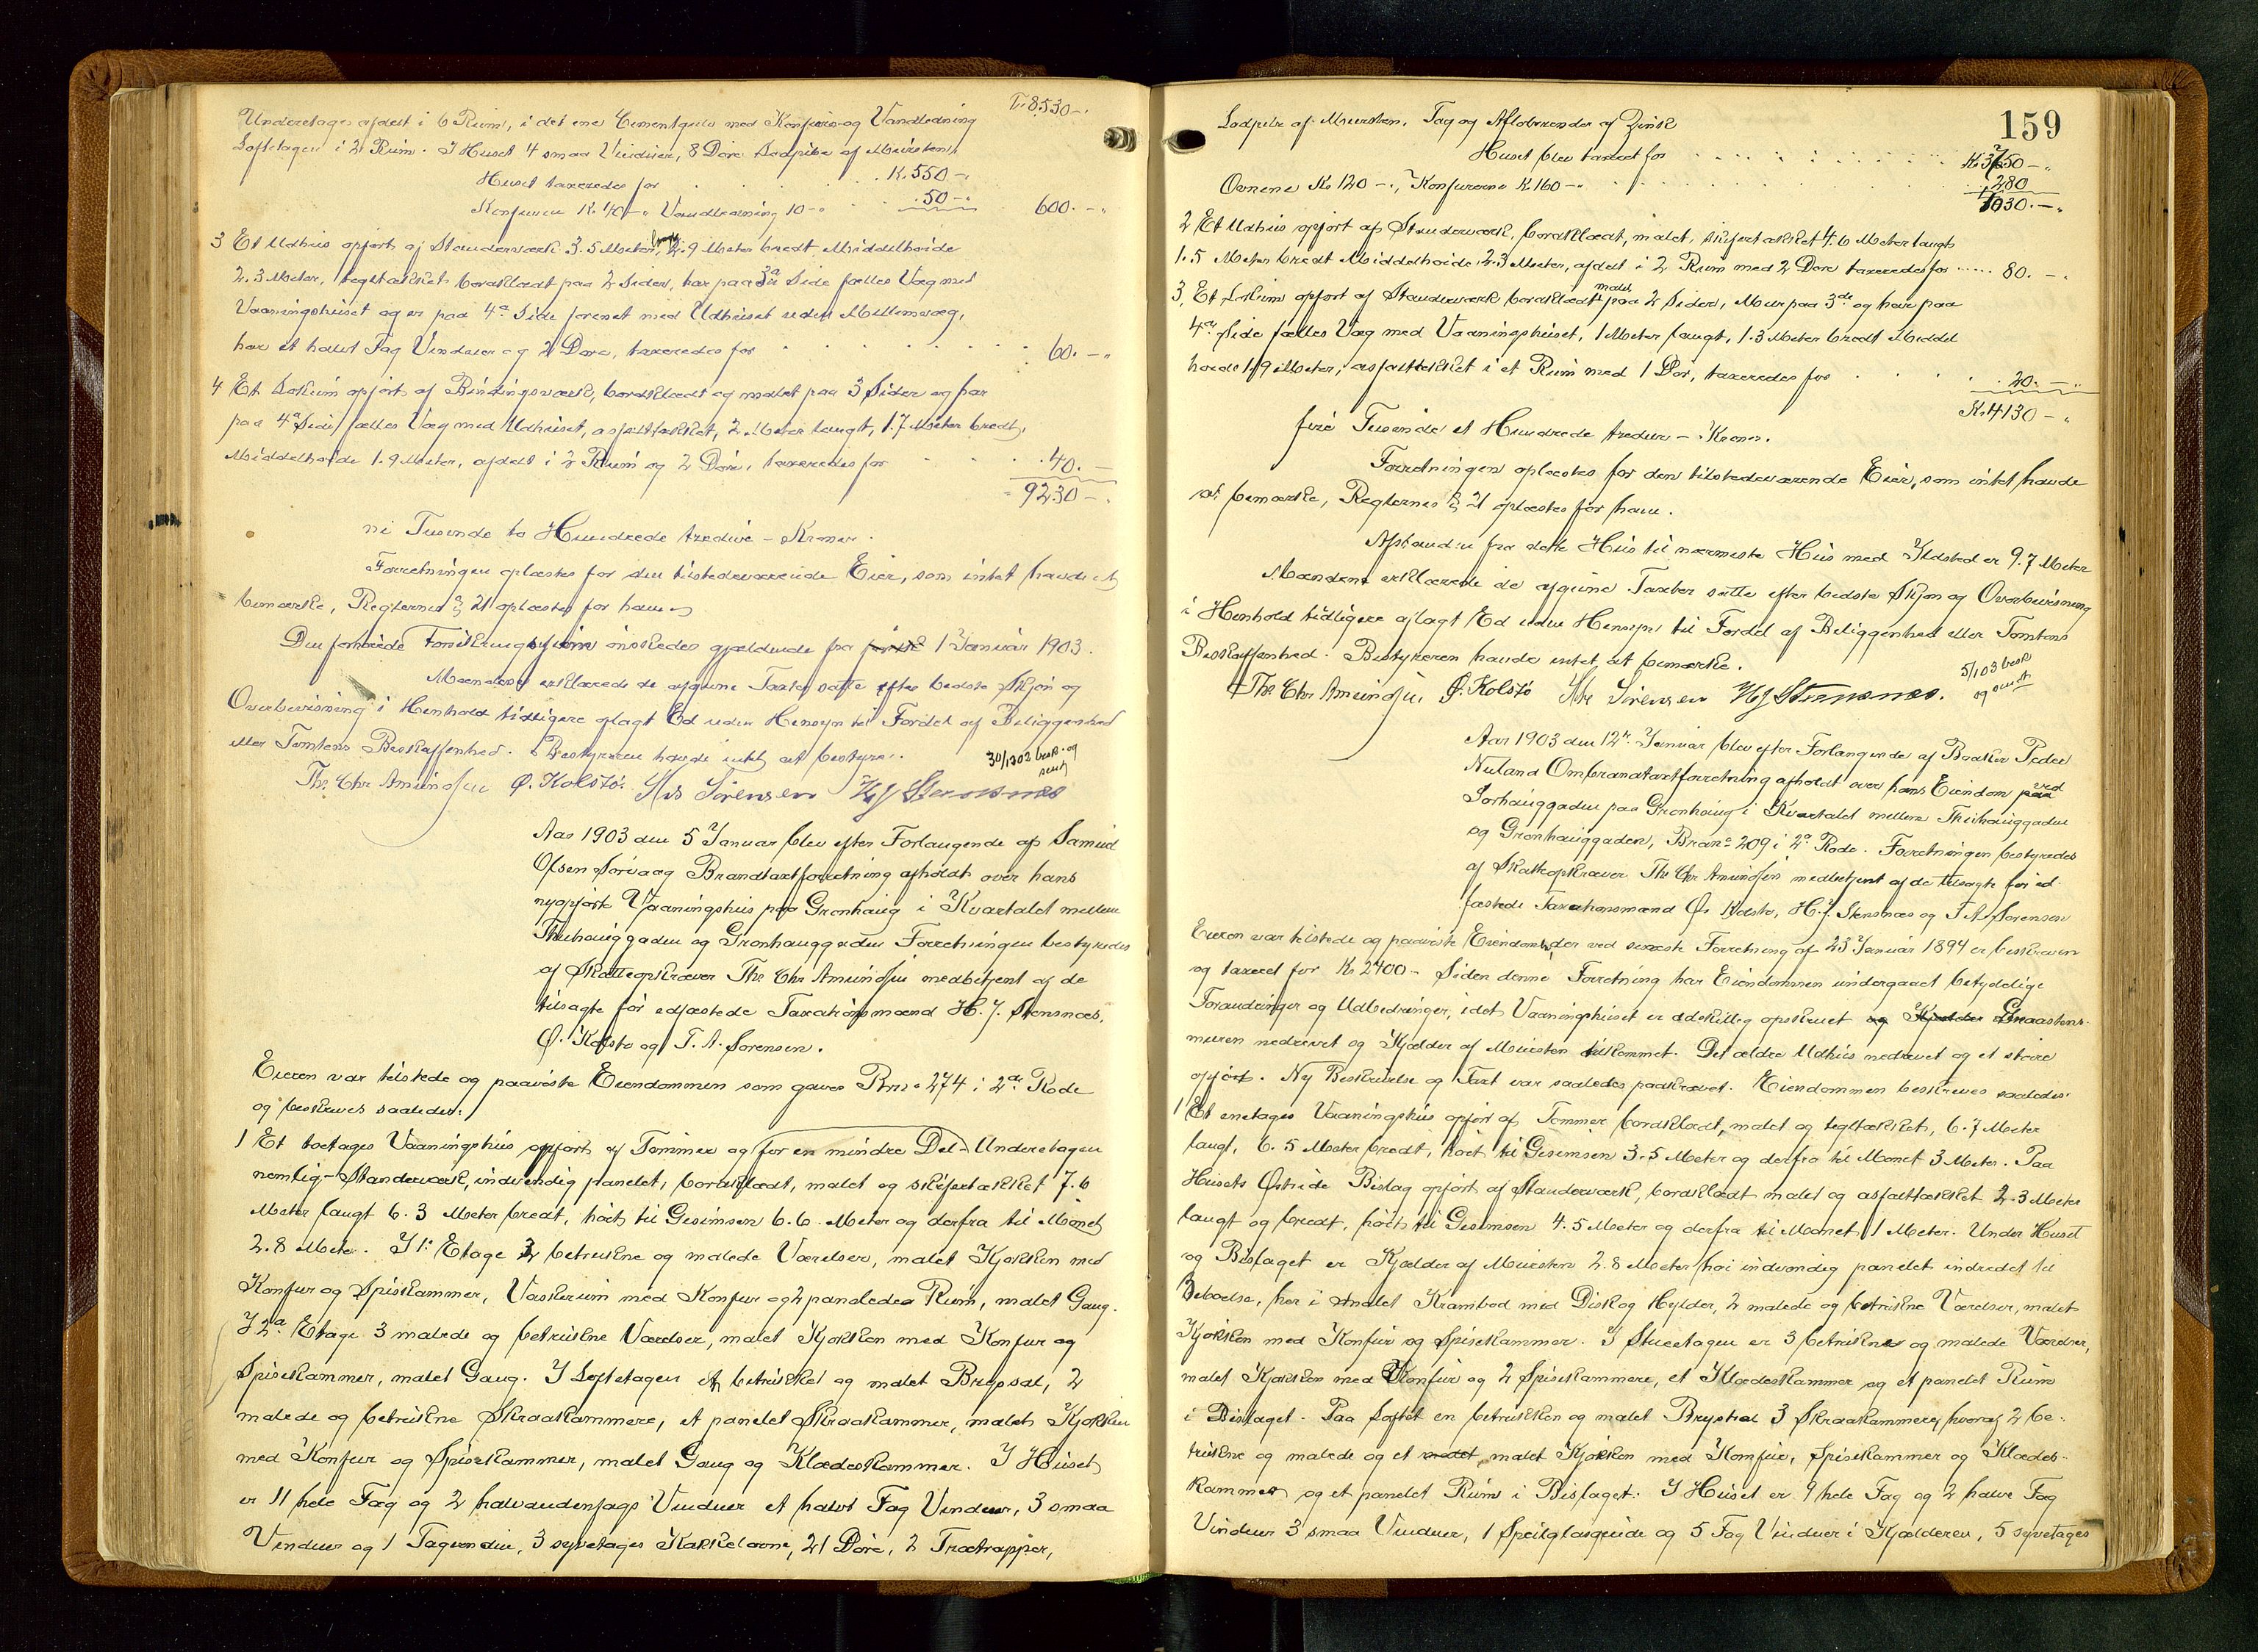 T. 8530-"
Underetages afdelt i 6 Rum, i det ene Cementgulv med Komfur og Vandledning
Loftetagen i 2 Rum. I Huset 4 smaa Vinduer, 8 Døre Ladpibe af Mursten,
Huset taxeredes for . . . . K. 550-"
Komfuren K. 40-" Vandledning 10-" . . 50-" 600.-"
3 Et Udhus opført af Standerværk 3.5 Meter langt, 2.9 Meter bredt Middelhøide
2.3 Meter, tegltækket bordklædt paa 2 Sider, har paa 3a Side fælles Væg med
Vaaningshuset og er paa 4a Side forenet med Udhuset uden Mellemvæg,
har et halvt Fag Vinduer og 2 Døre, taxeredes for . . . . 60.-"
4 Et Lokum opført af Bindingsværk, bordklædt og malet paa 3 Sider og har
paa 4a Side fælles Væg med Udhuset, asfalttækket, 2 Meter langt, 1.7 Meter bredt,
Middelhøide 1.9 Meter, afdelt i 2 Rum og 2 Døre, taxeredes for . . . 40.-
9230-"
ni Tusende to Hundrede tredive - Kroner.
Forretningen oplæstes for den tilstedeværende Eier, som intet havde at
bemærke, Reglernes § 21 oplæstes for ham.
Den forhøiede Forsikringssum ønskedes gjældende fra 1 Januar 1903.
Mændene erklærede de afgivne Taxter satte efter bedste Skjøn og
Overbevisning i Henhold tidligere aflagt Ed uden Hensyn til Fordel af Beliggenhed
eller Tomtens Beskaffenhed. Bestyreren havde intet at bestyre.
30/1 1902 besk. og sendt
Th. Chr Amundsen Ø. Kolstø. Ths Sørensen H J Stensnæs
Aar 1903 den 5 Januar blev efter Forlangende af Samuel
Olsen Sørvaag Brandtaxtforretning afholdt over hans
nyopførte Vaaningshus paa Grønhaug i Kvartalet mellem
Thuhauggaden og Grønhauggaden Forretningen bestyredes
af Skatteopkræver Th. Chr Amundsen medbetjent af de
tilsagte før edfæstede Taxationsmænd H. J. Stensnæs,
Ø. Kolstø og T. A. Sørensen.
Eieren var tilstede og paaviste Eiendommen som gaves Brn: 274 i 2de Rode
og beskrives saaledes:
1 Et toetages Vaaningshus opført af Tømmer og for en mindre Del - Underetagen
nemlig - Standerværk, indvendig panelet, bordklædt, malet og skifertækket 7.6
Meter langt 6.3 Meter bredt, høit til Gesimsen 6.6 Meter og derfra til Mønet
2.8 Meter. I 1: Etage 2 betrukne og malede Værelser, malet Kjøkken med
Komfur og Spiskammer, Vaskerum med Komfur og 2 panelede Rum, malet Gang.
I 2a Etage 3 malede og betrukne Værelser, malet Kjøkken med Komfur og
Spisekammer, malet Gang. I Loftetagen et betrukket og malet Brystsal, 2
malede og betrukne Skraakammere, et panelet Skraakammer, malet Kjøkken
med Komfur og Spisekammer, malet Gang og Klædeskammer. I Huset
er 11 hele Fag og 2 halvandenfags Vinduer et halvt Fag Vinduer, 3 smaa
Vinduer og 1 Tagvindu, 3 syvetages Kakkelovne, 21 Døre, 2 Trætrapper,
159
Ladpibe af Mursten, Tag og Afløbsrender af Zink
Huset blev taxeret for . . . . K. 3750-"
Ovnene K. 120-", Komfurerne K. 160-" . . . 280
4030.-"
2 Et Udhus opført af Standerværk, bordklædt, malet, skifertækket 4.6 Meter langt
1.5 Meter bredt Middelhøide 2.3 Meter, afdelt i 2 Rum med 2 Døre taxeredes for ..... 80.-"
3, Et Lokum opført af Standerværk bordklædt malet paa 2 Sider, Mur paa 3de og har paa
4a Side fælles Væg med Vaaningshuset, 1 Meter langt, 1.3 Meter bredt Middel
høide 1.9 Meter, asfalttækket i et Rum med 1 Dør, taxeredes for . . . . 20.-"
K. 4130-"
fire Tusende et Hundrede tredive - Kroner.
Forretningen oplæstes for den tilstedeværende Eier, som intet havde
at bemærke, Reglernes § 21 oplæstes for ham.
Afstanden fra dette Hus til nærmeste Hus med Ildsted er 9.7 Meter
Mændene erklærede de afgivne Taxter satte efter bedste Skjøn og Overbevisning
i Henhold tidligere aflagt Ed uden Hensyn til Fordel af Beliggenhed eller Tomtens
Beskaffenhed. Bestyreren havde intet at bemærke.
5/1 03 besk og sendt
Th. Chr Amundsen Ø. Kolstø Ths Sørensen H J Stensnæs.
Aar 1903 den 12te Januar blev efter Forlangende af Peder
Nuland Ombrandtaxtforretning afholdt over hans Eiendom ved
Sørhauggaden paa Grønhaug i Kvartalet mellem Thuhauggaden
og Grønhauggaden, Brano 209 i 2a Rode. Forretningen bestyredes
af Skatteopkræver Th Chr Amundsen medbetjent af de tilsagte før ed-
fæstede Taxationsmænd Ø. Kolstø, H. J. Stensnæs og T. A. Sørensen
Eieren var tilstede og paaviste Eiendommen, der ved seneste Forretning af 23 Januar 1894 er beskreven
og taxeret for Kr 2400- Siden denne Forretning har Eiendommen undergaaet betydelige
Forandringer og Udbedringer, idet Vaaningshuset er adskillig opskruet og Kjælder Graastens-
muren nedrevet og Kjælder af Mursten tilkommet. Det ældre Udhus nedrevet og et større
opført. Ny Beskrivelse og Taxt var saaledes paakrævet. Eiendommen beskrives saaledes:
1 Et enetages Vaaningshus opført af Tømmer bordklædt, malet og tegltækket, 6.7 Meter
langt, 6.5 Meter bredt, høit til Gesimsen 3.5 Meter og derfra til Mønet 3 Meter. Paa
Husets Østside Bislag opført af Standerværk, bordklædt malet og asfalttækket 2.3 Meter
langt og bredt, høit til Gesimsen 4.5 Meter og derfra til Mønet 1 Meter. Under Huset
og Bislaget er Kjælder af Mursten 2.8 Meter høi indvendig panelet indredet til
Beboelse, her i malet Krambod med Disk og Hylder, 2 malede og betrukne Værelser, malet
Kjøkken med Komfur og Spisekammer. I Stueetagen er 3 betrukne og malede Værelser,
malet Kjøkken med Komfur og 2 Spisekammere, et Klædeskammer og et panelet Rum
i Bislaget. Paa Loftet en betrukken og malet Brystsal 3 Skraakammere, hvoraf 2 be-
trukne og malede og et malet, malet Kjøkken med Komfur, Spisekammer og Klædes-
kammer og et panelet Rum i Bislaget. I Huset er 9 hele Fag og 2 halve Fag
Vinduer 3 smaa Vinduer, 1 Speilglasrude og 5 Fag Vinduer i Kjælderen, 5 syvetages